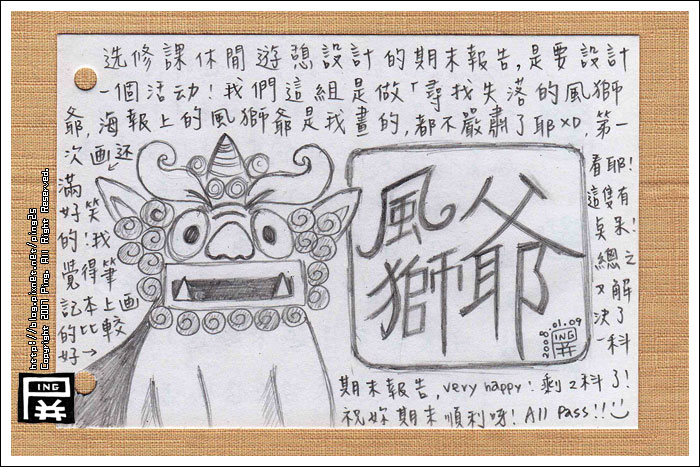 选修課休閒遊憩設計的期末報告,是要設計
一個活动!我們這組是做「尋找失落的風獅
爺,海報上的風獅爺是我畫的,都不嚴肅了耶XD,第一
次画还
滿好笑
的!我
覺得筆
記本上画
的比較
好→
看耶!
這隻有
貞呆!
總之
又解
決了
一科
風獅爺
2008.01.09
ING
期末報告,very happy!剩2科了!
祝妳期末順利呀!All Pass!!
http://blog.pixnet.net/ping25
Copyright 2007 Ping. All Right Reserved.
ING